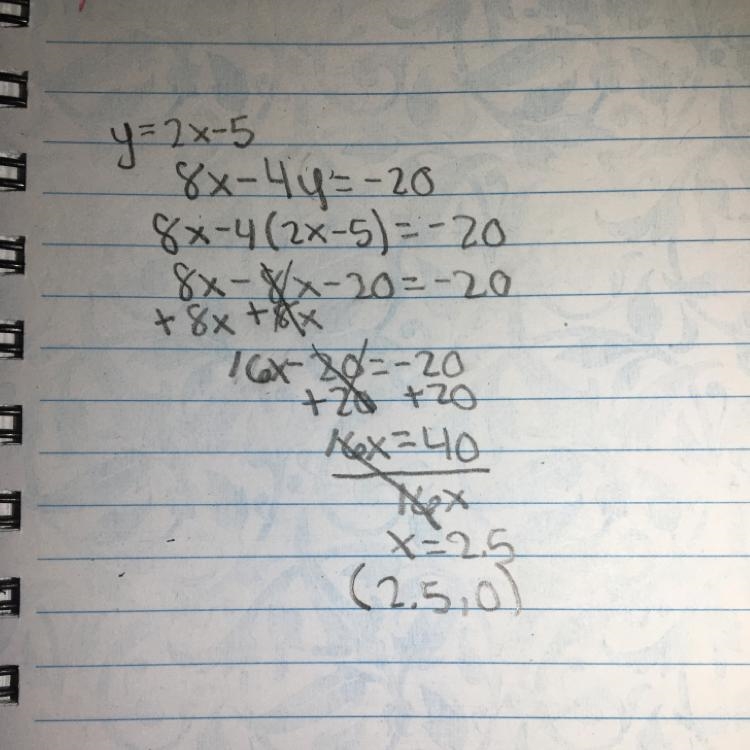 y=2x-5
8x-4y=-20
8x-4(2x-5)=-20
8x-8x-20=-20
+8x +8x
16x-20=-20
+20 +20
16x=40
16x
x=2.5
(2.5,0)